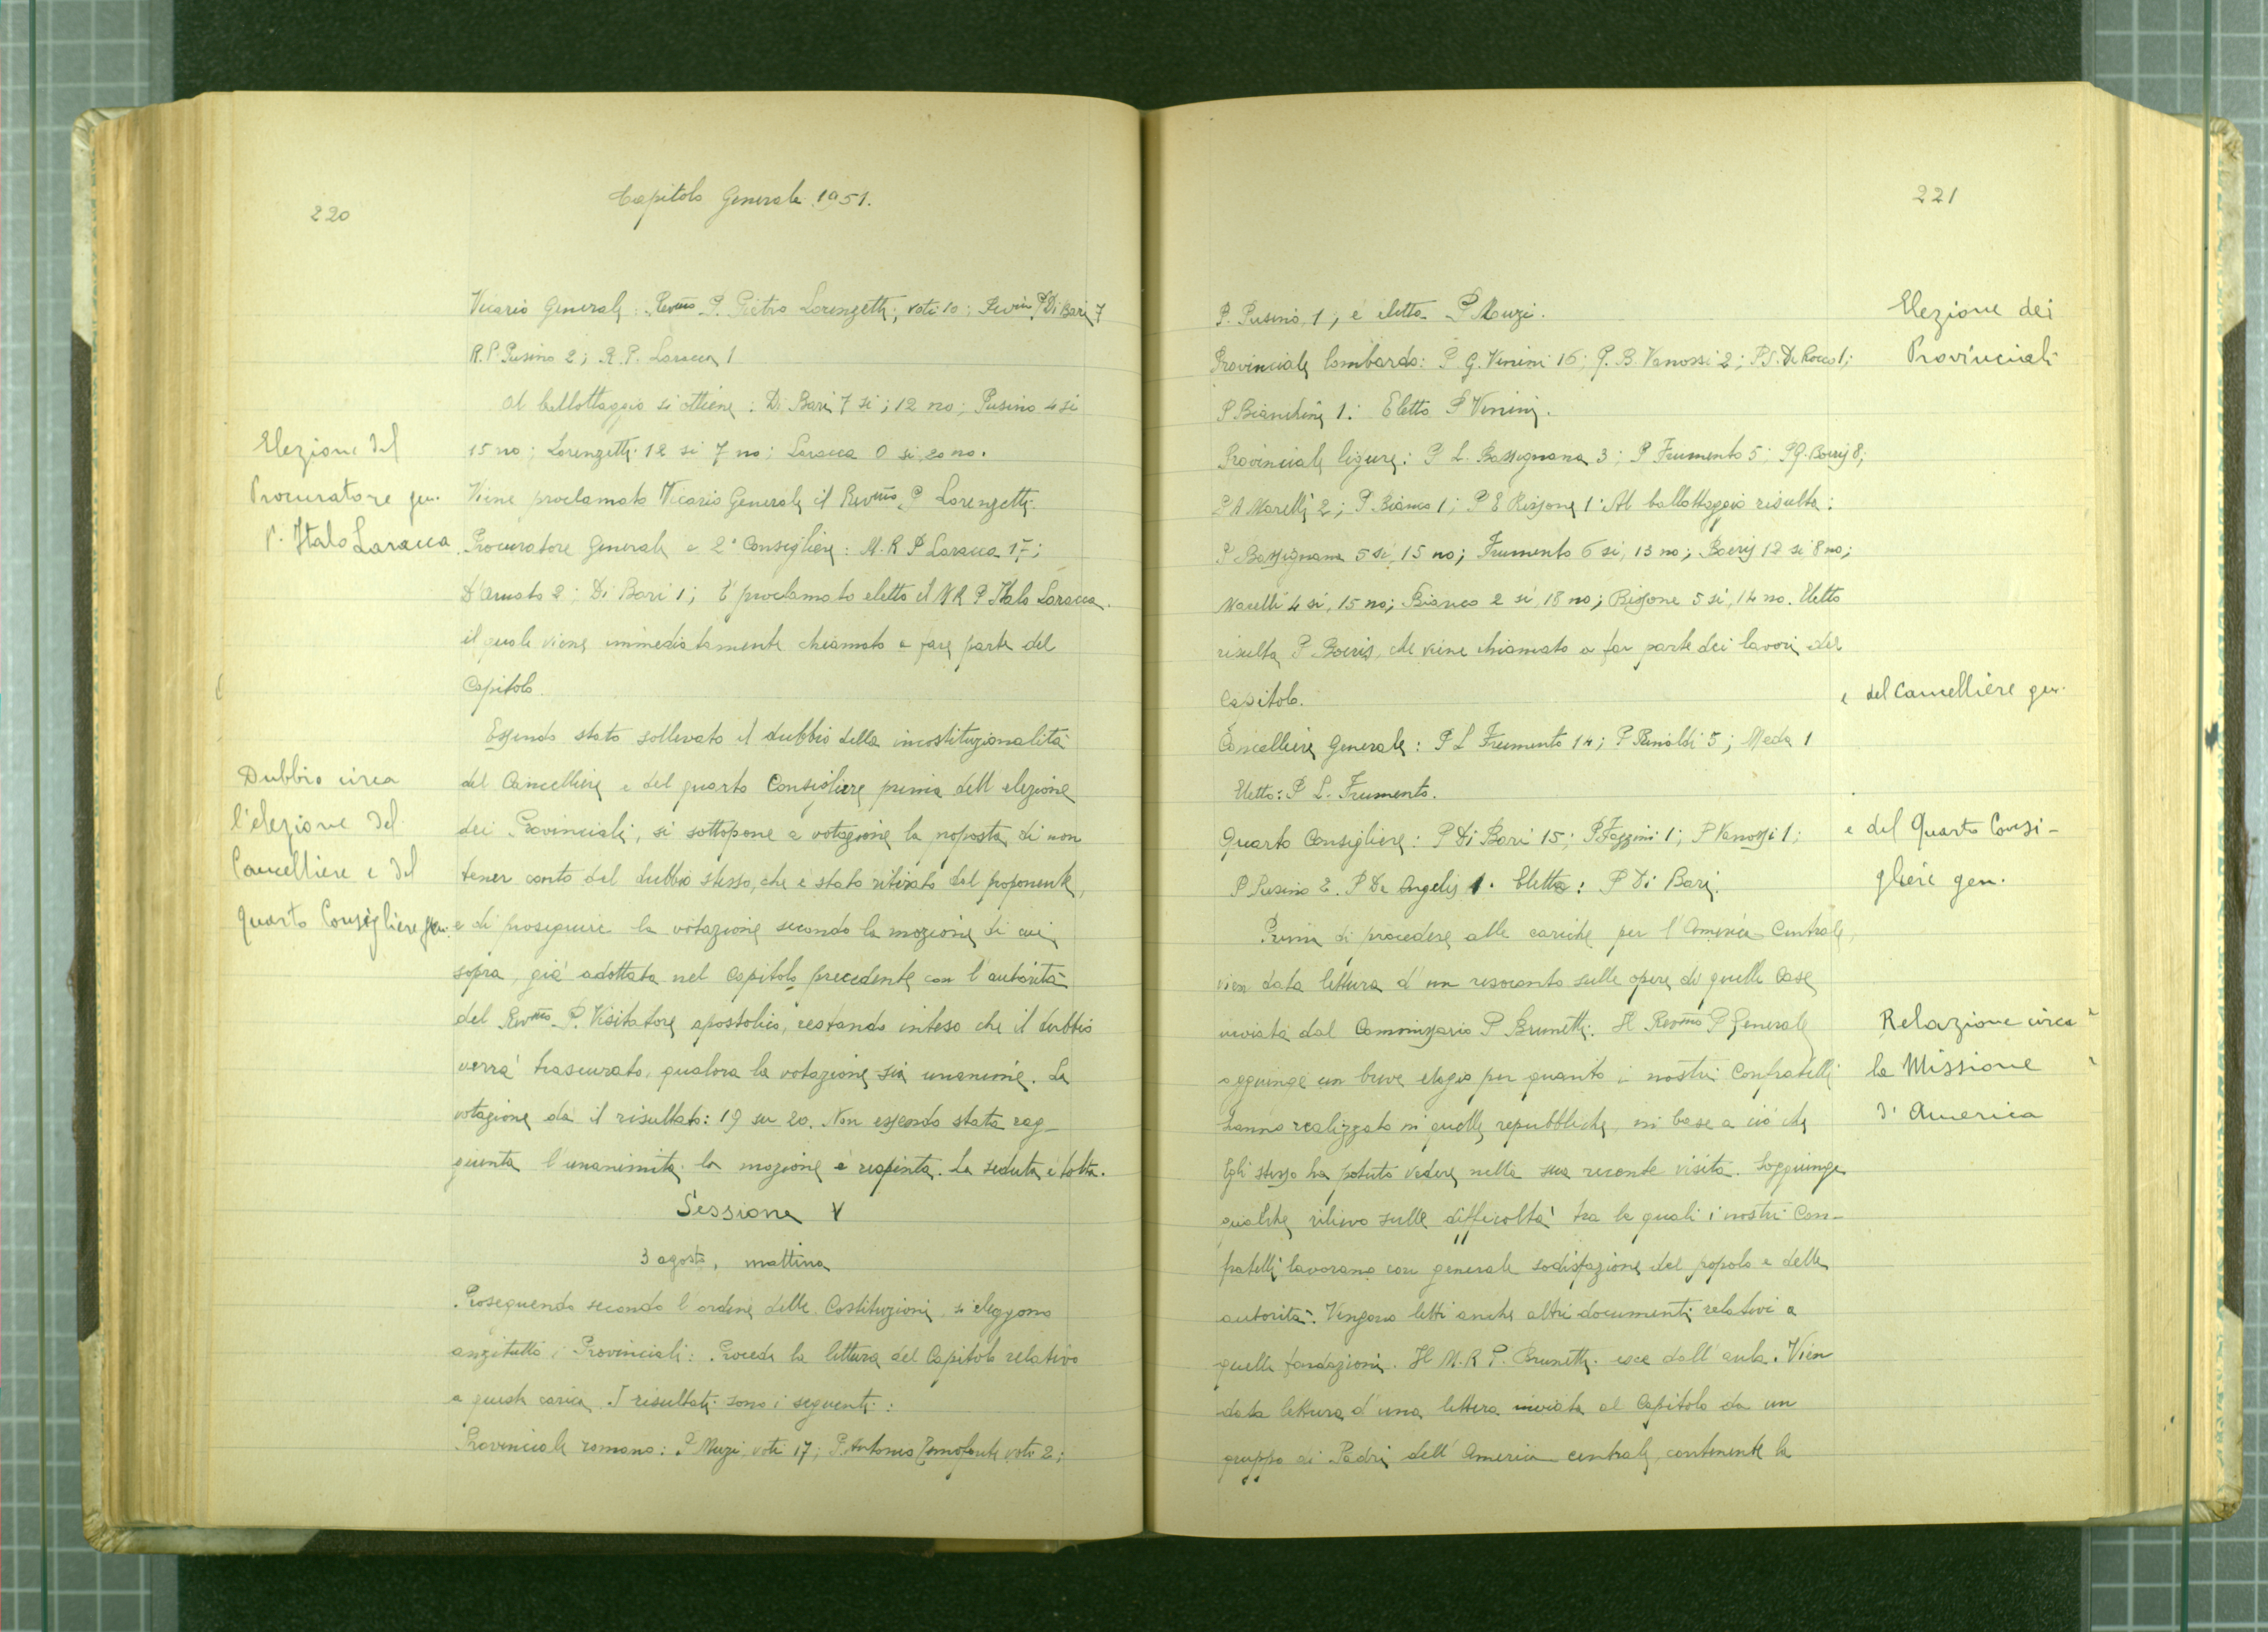 220
Capitolo Generale 1951.
Vicario Generale: Rev.mo P. Pietro Lorenzetti, voti 10; Rev.mo P. Di Bari 7
R. P. Pusino 2; R. P. Laracca 1
Al ballottaggio si ottiene: Di Bari 7 si; 12 no; Pusino 4 si
15 no; Lorenzetti 12 si 7 no; Laracca 0 si 20 no.
Viene proclamato Vicario Generale il Rev.mo P. Lorenzetti.
Procuratore Generale e 2° Consigliere: M. R. P. Laracca 17;
D'Amato 2; Di Bari 1; È proclamato eletto il M R P Italo Laracca.
il quale viene immediatamente chiamato a fare parte del
Capitolo.
Essendo stato sollevato il dubbio della incostituzionalità
del Cancelliere e del quarto Consigliere prima dell'elezione
dei Provinciali, si sottopone a votazione la proposta di non
tener conto del dubbio stesso, che è stato ritirato dal proponente,
e di proseguire la votazione secondo la mozione di cui
sopra, già adottata nel Capitolo precedente con l'autorità
del Rev.mo P. Visitatore apostolico, restando inteso che il dubbio
verrà trascurato, qualora la votazione sia unanime. La
votazione dà il risultato: 19 su 20. Non essendo stata rag-
giunta l'unanimità la mozione è respinta. La seduta è tolta.
Sessione V
3 agosto, mattina
Proseguendo secondo l'ordine delle Costituzioni, si eleggono
anzitutto i Provinciali: Precede la lettura del Capitolo relativo
a questa carica. I risultati sono i seguenti:
Provinciale romano: P. Muzi, voti 17; P. Antonio voti 2;
Elezione del
Procuratore gen.
P. Italo Laracca
Dubbio circa
l'elezione del
Cancelliere e del
Quarto Consigliere gen.
221
P. Pusino, 1; è eletto P Muzi.
Provinciale lombardo: P G. Venini 16; P. B. Vanossi 2; P. S. De Rocco 1;
P Bianchini 1: Eletto P Venini.
Provinciale ligure: P L. Bassignana 3; P Frumento 5; P G. Boeris 8;
P A Marelli 2; P Bianco 1; P E Rissone 1. Al ballottaggio risulta:
P Bassignana 5 si, 15 no; Frumento 6 si, 13 no; Boeris 12 si 8 no;
Marelli 4 si, 15 no; Bianco 2 si, 18 no; Rissone 5 si, 14 no. Eletto
risulta P Boeris, che viene chiamato a far parte dei lavori del
Capitolo.
Cancelliere Generale: P L Frumento 14; P Rinaldi 5; Meda 1
Eletto: P L. Frumento.
Quarto Consigliere: P Di Bari 15; P Fazzini 1; P Vanossi 1;
P Pusino 2. P De Angelis 1. Eletto: P Di Bari.
Prima di procedere alle cariche per l'America Centrale,
vien data lettura d'un resoconto sulle opere di quelle Case
inviata dal Commissario P Brunetti. Il Rev.mo P Generale
aggiunge un breve elogio per quanto i nostri Confratelli
hanno realizzato in quelle repubbliche, in base a ciò che
Egli stesso ha potuto vedere nella sua recente visita. Soggiunge
qualche rilievo sulle difficoltà tra le quali i nostri Con-
fratelli lavorano con generale sodisfazione del popolo e delle
autorità. Vengono letti anche altri documenti relativi a
quelle fondazioni. Il M. R P. Brunetti esce dall'aula. Vien
data lettura d'una lettera inviata al Capitolo da un
gruppo di Padri dell'America centrale, contenente la
Elezione dei
Provinciali
e del Cancelliere gen.
e del Quarto Consi-
gliere gen.
Relazione circa
la Missione
d'America